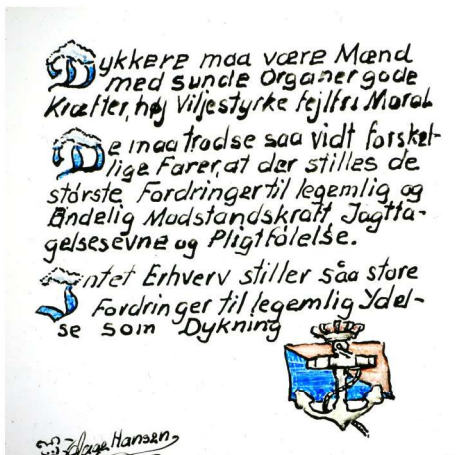 Dykkere maa være Mænd
med sunde Organer gode
Kræfter, høj Viljestyrke fejlfri Moral
De maa trodse saa vidt forskel-
lige Farer, at der stilles de
største Fordringer til legemlig og
Åndelig Modstandskraft, Jagtta-
gelsesevne og Pligtfølelse.
Intet Erhverv stiller saa store
Fordringer til legemlig Ydel-
se som Dykning
Aage Hansen